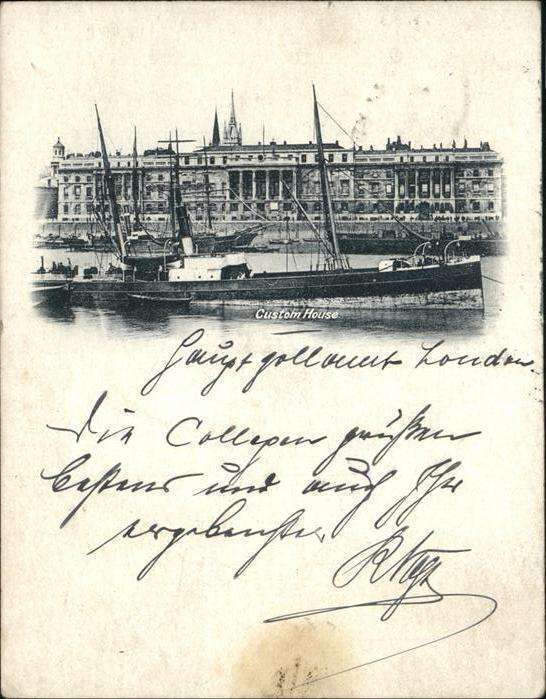 Custom House
Hauptzollamt London.
Die Collegen grüßen
bestens und auch Ihr
ergebenster